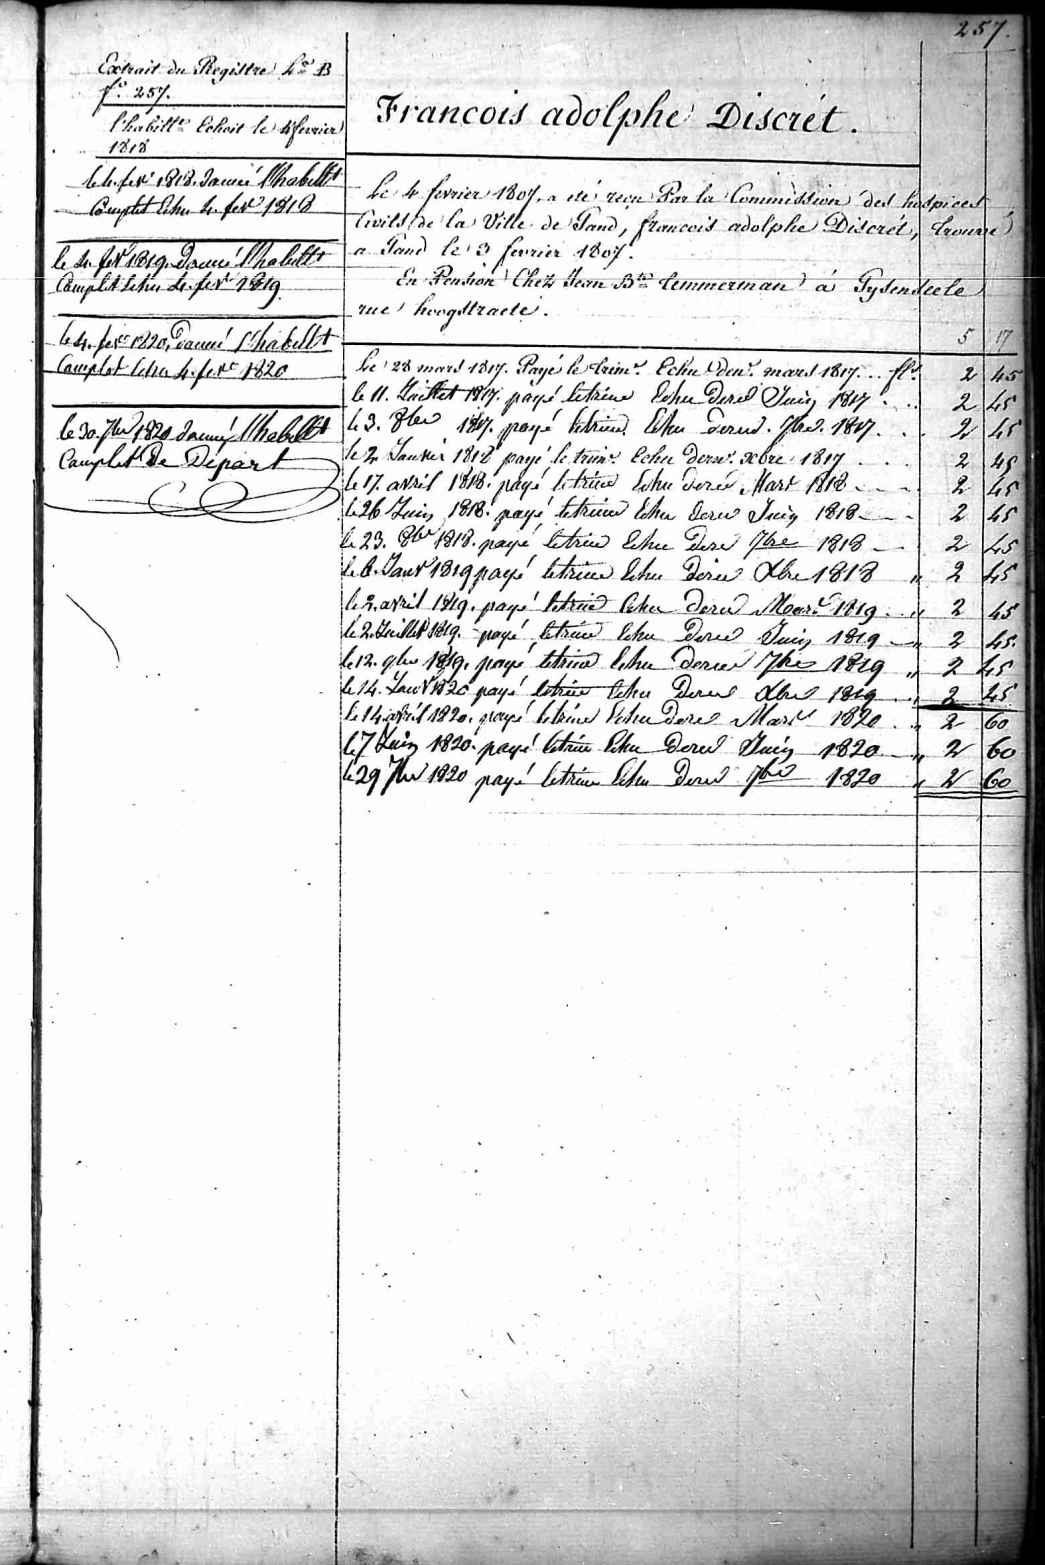 257.
Extrait du Registre L.re B
f.o 257.
l'habillt.m Echoit le 4 fevrier
1818
le 4. fevr 1818. donné l'habillt
Complet Echu 4. fevr 1818
le 4. fevr 1819. Donné l'habillt
Complet Echu 4. fevr 1819
le 4. fevr 1820, Donné l'habillt
Complet Echu 4. fevr 1820
le 30. 7bre 1820 donné l'habillt
Complet De Départ
Francois adolphe Discrét.
Le 4 fevrier 1807, a été reçu Par la Commission des hospices
Civils de la Ville de Gand, francois adolphe Discrét, trouvé
a Gand le 3 fevrier 1807.
En Pension Chez Jean Bte temmerman à Gysenseele
rue hoogstraete.
5 17
Le 28 mars 1817. Payé le trimr. Echu denr. mars 1817... fls. 2 45
le 11. Juillet 1817. payé letrime Echu Dered Juin 1817 . . . 2 45
le 3. 8bre 1817. payé letrime Echu Dered. 7bre. 1817. . . 2 45
le 2 Janvier 1818 payé le trimr. Echu dernr. xbre 1817 . . . . 2 45
le 17. avril 1818. payé letrime Echu dered Mars 1818 - - - 2 45
le 26 Juin 1818. payé letrime Echu Dered Juin 1818 - - - 2 45
le 23. 8bre 1818. payé letrime Echu Dered 7bre 1818 — 2 45
le 8. Janvr 1819 payé letrime Echu Dered Xbre 1818 " 2 45
le 2. avril 1819. payé letrime Echu dered Mars 1819 . " 2 45
le 2. Juillet 1819. payé letrime Echu Dered Juin 1819 — " 2 45.
le 12. 9bre 1819. payé letrime Echu Dered 7bre 1819 " 2 45
le 14. Janvr 1820 payé letrime Echu Dered Xbre 1819 " 2 45
le 14 avril 1820. payé letrime Echu Dered Mars 1820 . " 2 60
le 7 Juin 1820. payé letrime Echu dered Juin 1820 — " 2 60
le 29 7bre 1820 payé letrime Echu Dered 7bre 1820 " 2 60